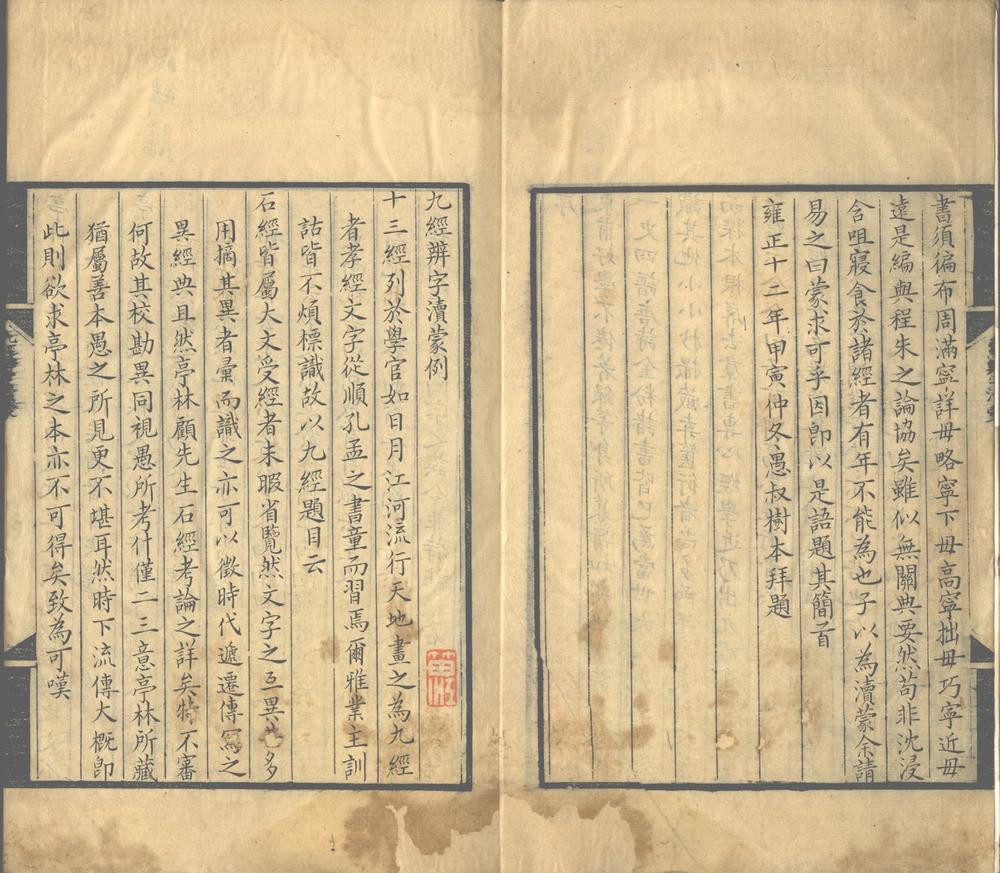 書須徧布周滿寧詳毋略寧下毋高寧拙毋巧寧近毋
遠是編與程朱之論協矣雖似無關典要然苟非沈浸
含咀寢食於諸經者有年不能為也子以為瀆蒙余請
易之曰蒙求可乎因卽以是語題其簡首
雍正十二年甲寅仲冬愚叔樹本拜題
九經辨字瀆蒙例
十三經列於學官如日月江河流行天地畫之為九經
者孝經文字從順孔孟之書童而習焉爾雅業主訓
詁皆不煩標識故以九經題目云
石經皆屬大文受經者未暇省覽然文字之互異多
用摘其異者彙而識之亦可以徵時代遞遷傳寫之
異經典且然亭林顧先生石經考論之詳矣特不審
何故其校勘異同視愚所考什僅二三意亭林所藏
猶屬善本愚之所見更不堪耳然時下流傳大概卽
此則欲求亭林之本亦不可得矣致為可嘆